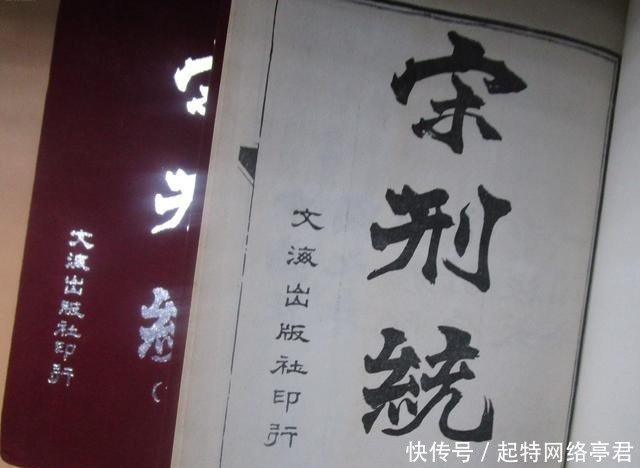 宋刑統
文海出版社印行
宋刑統(
文海出版社印行
快传号/起特网络亭君